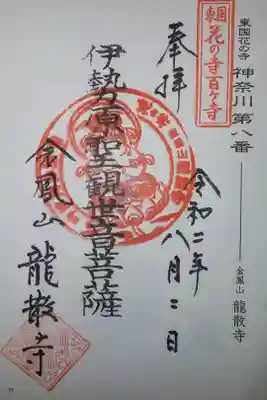 東国花の寺 神奈川 第八番
金鳳山 龍散寺
東国花の寺百ヶ寺
奉拝
令和二年八月二日
伊勢原聖観世音菩薩
金鳳山
龍散寺